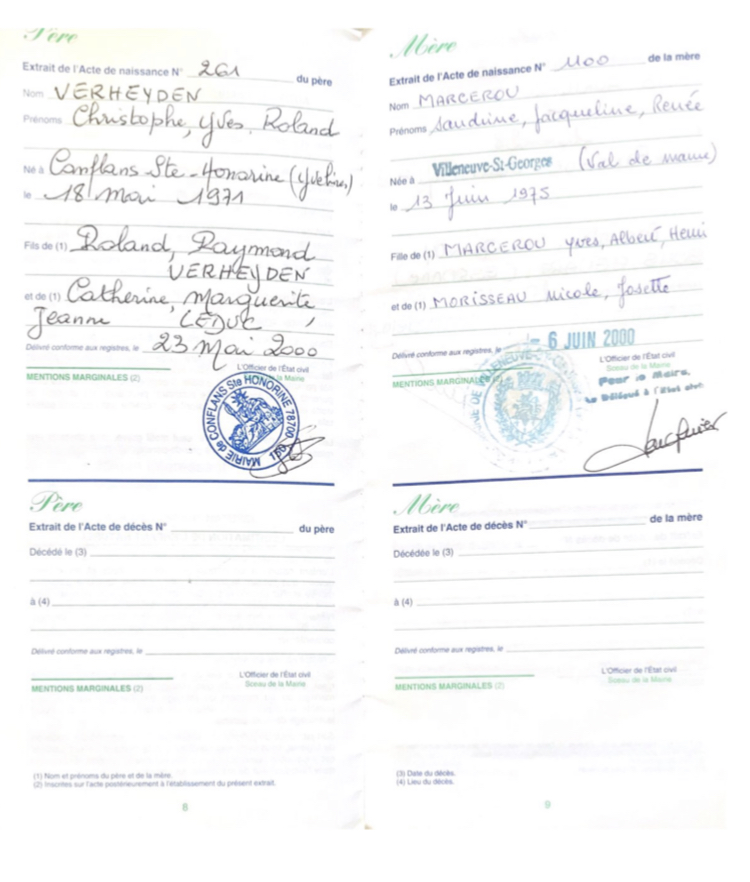 Père
Extrait de l'Acte de naissance N° 261 du père
Nom VERHEYDEN
Prénoms Christophe, Yves. Roland
Né à Conflans Ste-Honorine (Yvelines)
le 18 mai 1971
Fils de (1) Roland, Raymond
VERHEYDEN
et de (1) Catherine, Marguerite
Jeanne LEDUC,
Délivré conforme aux registres, le 23 Mai 2000
L'Officier de l'État civil
la Mairie
MENTIONS MARGINALES (2)
MAIRIE de CONFLANS Ste HONORINE 78700
Père
Extrait de l'Acte de décès N° du père
Décédé le (3)
à (4)
Délivré conforme aux registres, le
L'Officier de l'État civil
Sceau de la Mairie
MENTIONS MARGINALES (2)
(1) Nom et prénoms du père et de la mère.
(2) Inscrites sur l'acte postérieurement à l'établissement du présent extrait.
8
Mère
Extrait de l'Acte de naissance N° 1100 de la mère
Nom MARCEROU
Prénoms Sandrine, Jacqueline, Renée
Née à Villeneuve-St-Georges (Val de marne)
le 13 Juin 1975
Fille de (1) MARCEROU Yves, Albert, Henri
et de (1) MORISSEAU Nicole, Josette
Délivré conforme aux registres, le - 6 JUIN 2000
L'Officier de l'État civil
Sceau de la Mairie
Pour le Maire,
Le Délégué à l'État civil
MENTIONS MARGINALES (2)
Mère
Extrait de l'Acte de décès N° de la mère
Décédée le (3)
à (4)
Délivré conforme aux registres, le
L'Officier de l'État civil
Sceau de la Mairie
MENTIONS MARGINALES (2)
(3) Date du décès.
(4) Lieu du décès.
9